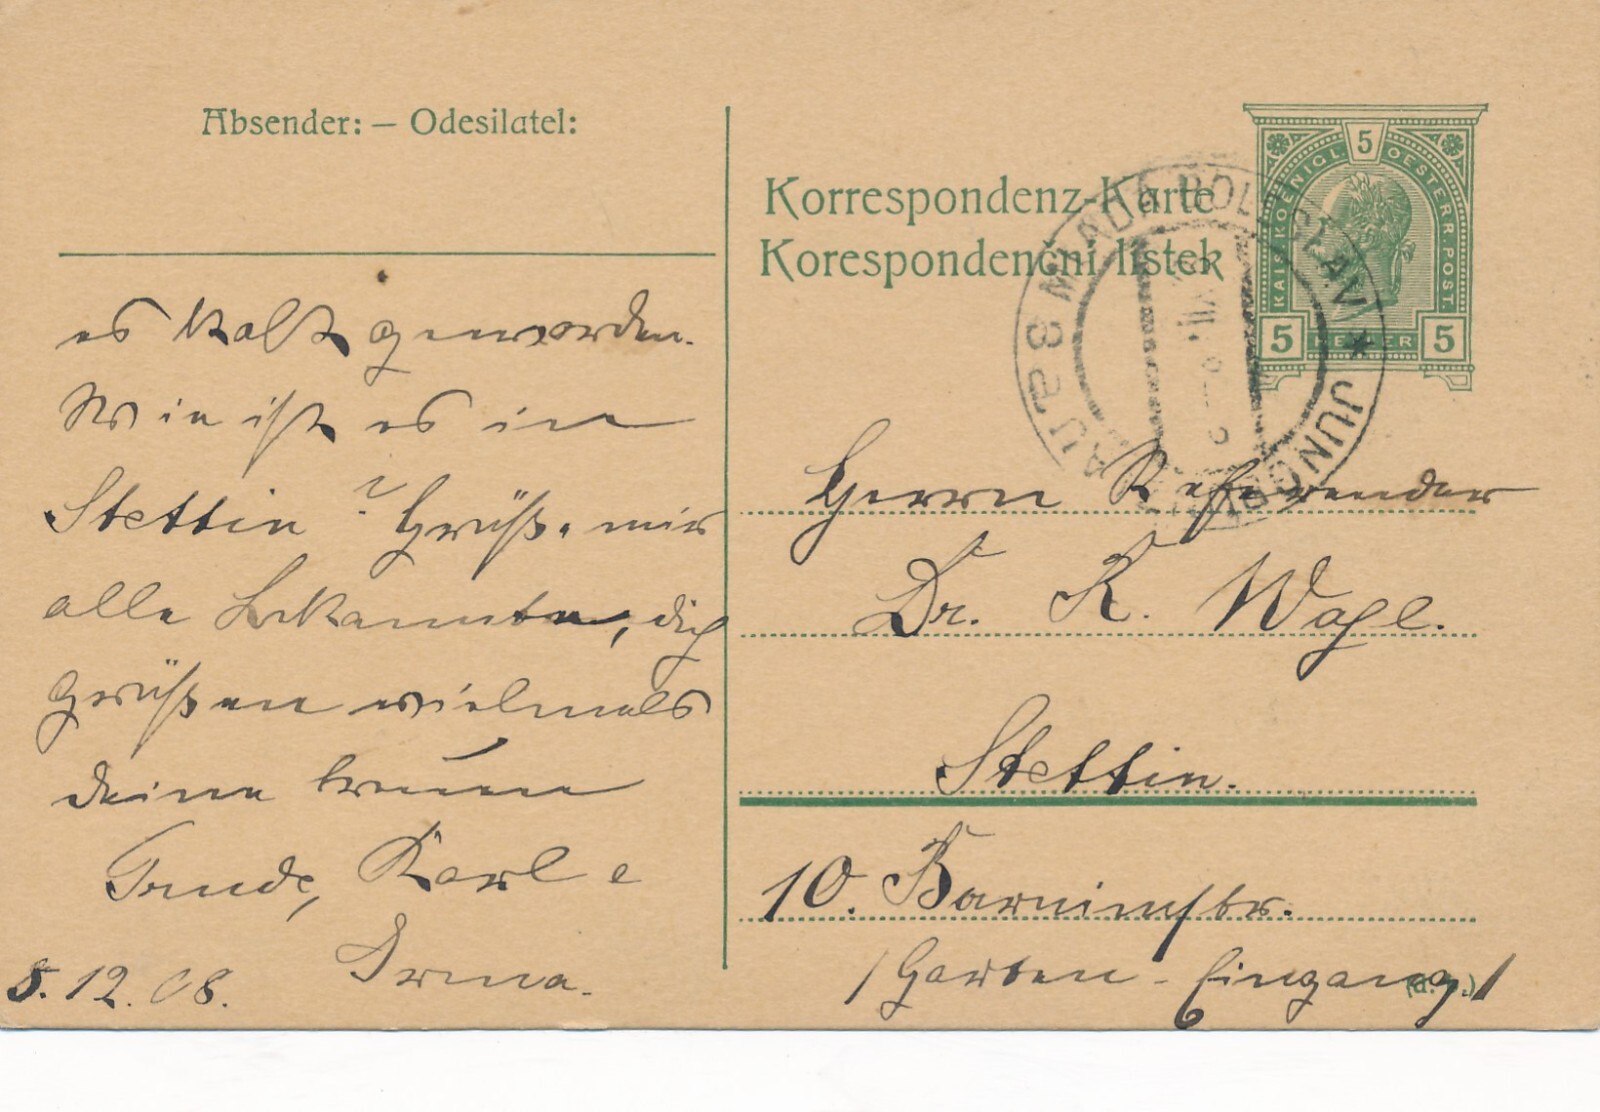 Absender: – Odesilatel:
es kalt geworden.
Wie ist es in
Stettin? Grüße mir
alle Bekannte, dich
grüßen vielmals
deine treuen
Trude, Karl e
Irma.
5.12.08.
Korrespondenz-Karte
Korespondenční lístek
5
KAIS. KOENIGL. OESTERR. POST.
5 HELLER 5
MLADÁ BOLESLAV * JUNGBUNZLAU 3a
Herrn Referendar
Dr. K. Wagl.
Stettin.
10. Barnimstr.
/Garten-Eingang./